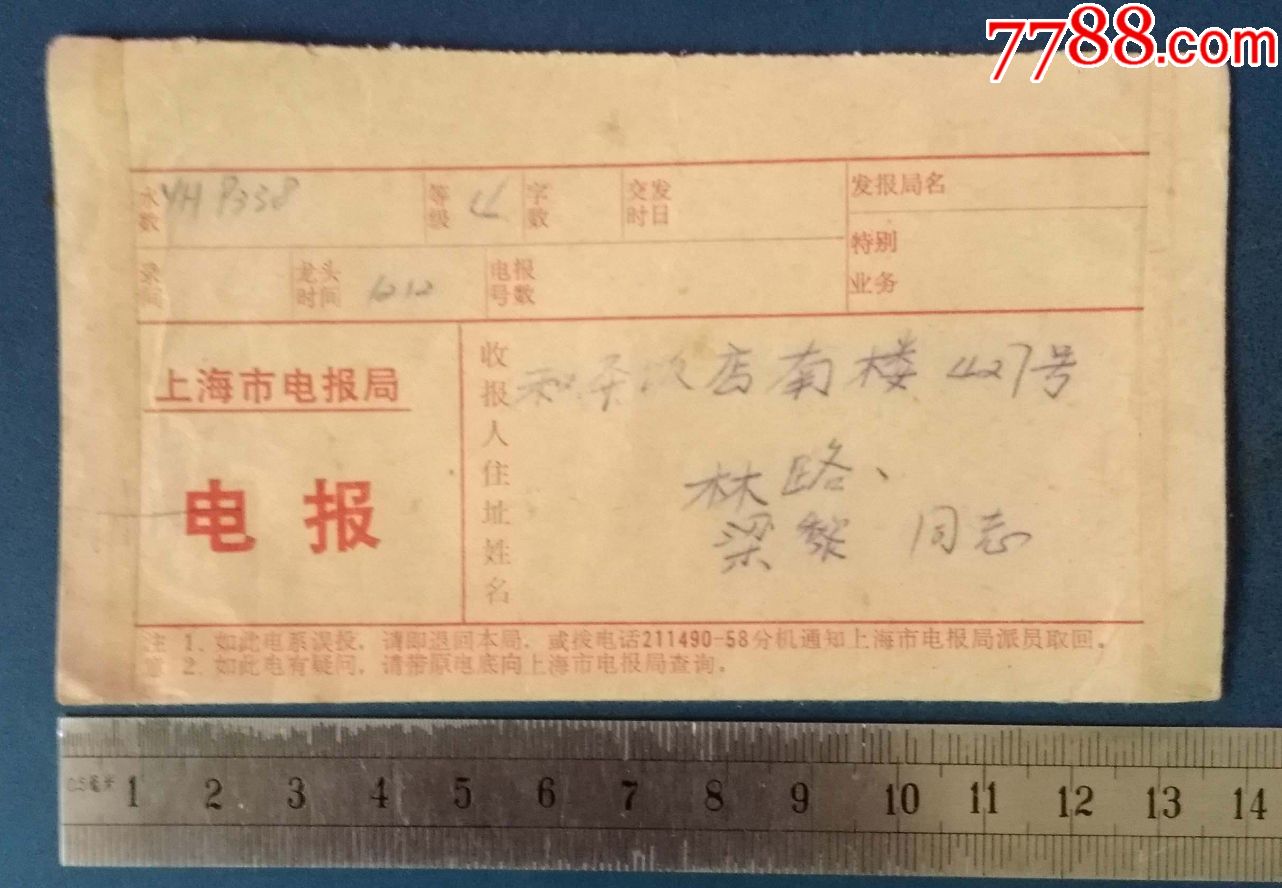 7788.com
水数 YH 8338 等级 4 字数 交发时日 发报局名
特别业务
录间 龙头时间 1212 电报号数
上海市电报局
电报
收报人住址姓名
和平饭店南楼427号
林路、
梁黎 同志
注 1. 如此电系误投,请即退回本局,或拨电话211490-58分机通知上海市电报局派员取回。
意 2. 如此电有疑问,请带原电底向上海市电报局查询。
0.5毫米 1 2 3 4 5 6 7 8 9 10 11 12 13 14